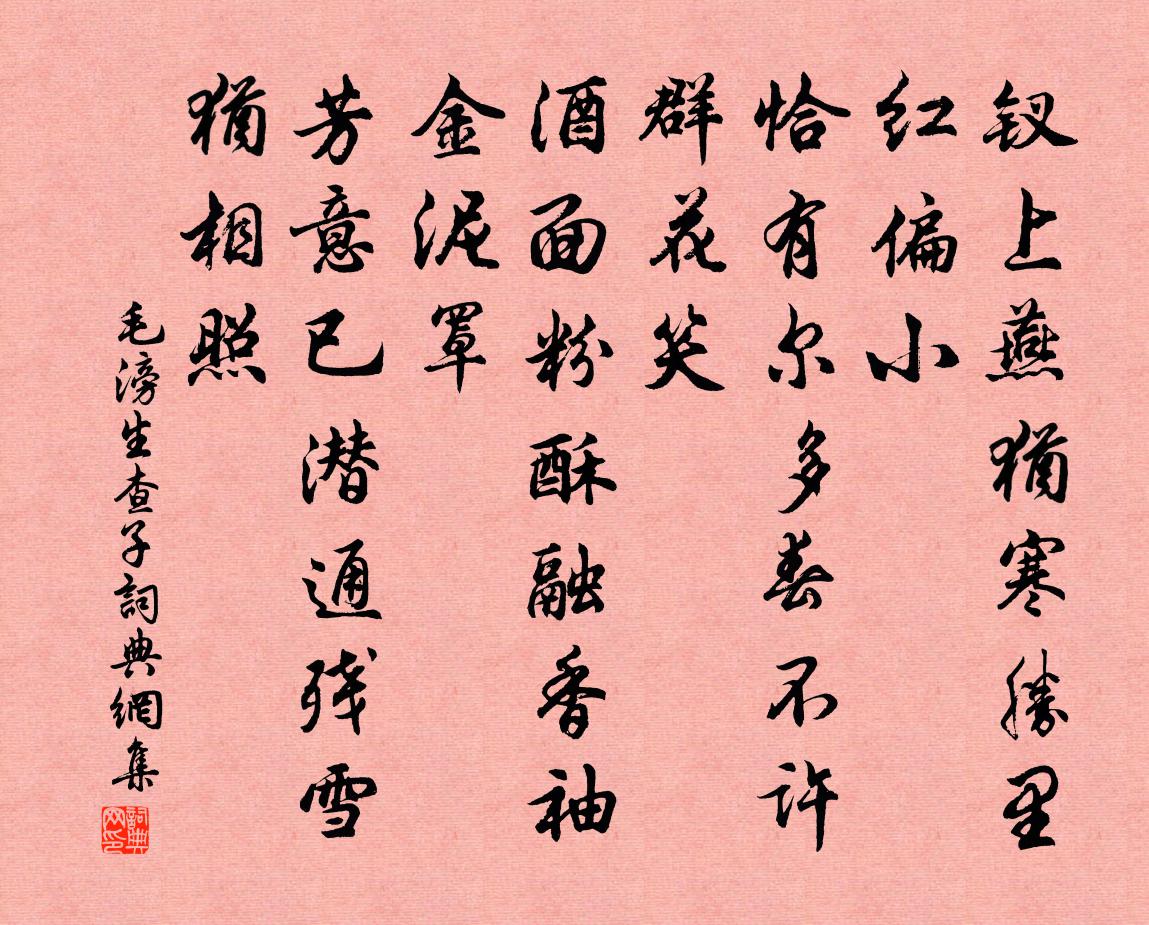 钗上燕犹寒胜里
红偏小
恰有尔多春不许
群花笑
酒面粉酥融香袖
金泥罩
芳意已潜通残雪
犹相照
毛滂生查子詞典網集
詞典网印